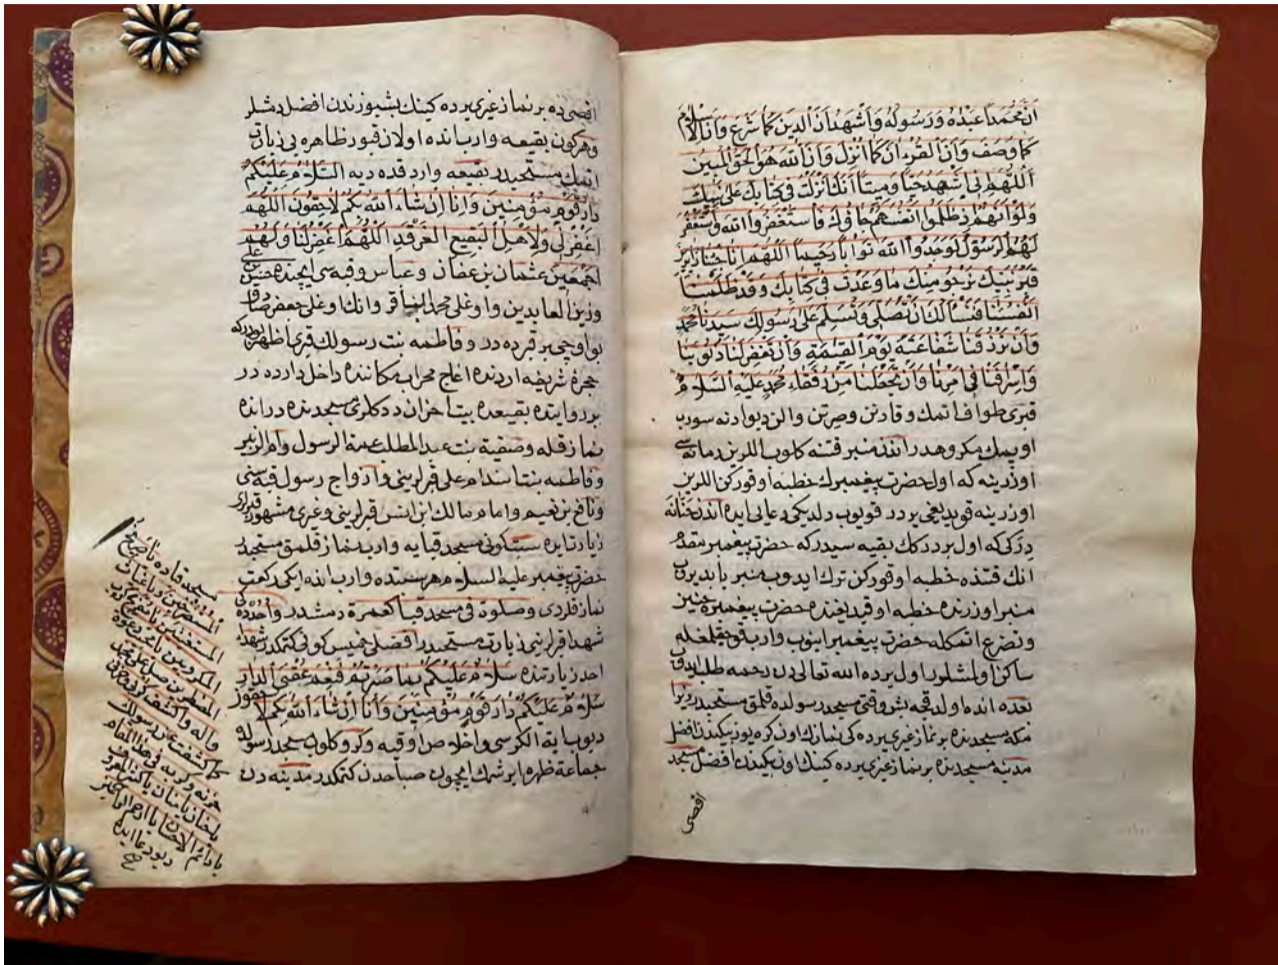 ان محمدا عبده ورسوله واشهد ان الدين كما شرع وان الاسلام
كما وصف وان القرءان كما انزل وان الله هو الحق المبين
اللهم اني اشهد حيا وميتا انك انزلت في كتابك على نبيك
ولو انهم اذ ظلموا انفسهم جاؤك فاستغفروا الله واستغفر
لهم الرسول لوجدوا الله توابا رحيما اللهم انا جئنا زائرين
قبر نبيك نرجو منك ما وعدت في كتابك وقد ظلمنا
انفسنا فنسألك ان تصلي وتسلم على رسولك سيدنا محمد
وان ترزقنا شفاعته يوم القيمة وان تغفر لنا ذنوبنا
واسرافنا في امرنا وان تجعلنا من رفقاء محمد عليه السلام
قبري طواف اتمك و
اوپمك مكروهدر اندن منبر قتنه كلوب اللرين رمانه سي
اوزرينه كه اول حضرت پيغمبرك خطبه اوقوركن اللرين
اوزرينه قويديغي يردر قويوب دلديكي دعاني ايده اندن حنانه
ديركى كه اول بر دركك بقيه سيدر كه حضرت پيغمبر مقدم
انك قتنده خطبه اوقوركن ترك ايدوب منبر يابديروب
منبر اوزرنده خطبه اوقيديغنده حضرت پيغمبره حنين
وتضرع اتمكله حضرت پيغمبر اينوب واروب قوجقلمغله
ساكن اولمشلردر اول يرده الله تعالى دن رحمه طلب ايدوب
بعده انده اولدقجه بش وقتي مسجد رسولده قلمق مستحبدر زيرا
مكه مسجدنده بر نماز غيري يرده كي نمازك اون كره يوز بيكندن افضل
مدينه مسجدنده بر نماز غيري يرده كينك اون بيكندن افضل مسجد
اقصى
اقصى ده بر نماز غيري يرده كينك بش يوزندن افضلدر مشلر
وهركون بقيعه واروب انده اولان قبور ظاهره يي زيارت
اتمك مستحبدر بقيعه واردقده ديه السلام عليكم
دار قوم مؤمنين وانا ان شاء الله بكم لاحقون اللهم
اغفر لي ولاهل البقيع الغرقد اللهم اغفر لنا ولهم
اجمعين عثمان بن عفان وعباس وقبه سي ايچنده حسن بن علي
وزين العابدين و اوغلي محمد الباقر و انك اوغلي جعفر صادق
بو اوچي بر قبرده در و فاطمه بنت رسولك قبري اظهر بودركه
حجره شريفه اردنده اغاج محراب مكاننده داخل دارده در
بر روايتده بقيعده بيت احزان ددكلري مسجدنده در انده
نماز قله وصفية بنت عبد المطلب عمة الرسول وام الزبير
وفاطمه بنت اسد ام علي قبرلريني وازواج رسول قبه سني
ونافع بن نعيم وامام مالك ابن انس قبرلريني وغيري مشهور قبرلري
زيارت ايده سبت كوني مسجد قبايه واروب نماز قلمق مستحبدر
حضرت پيغمبر عليه السلام هر سبتده واروب انده ايكي ركعت
نماز قلردي وصلوة في مسجد قبا كعمرة دمشدر واحدده كي
شهدا قبرلريني زيارت مستحبدر افضلي خميس كوني كتمكدر شهدا
احد زيارتنده سلام عليكم بما صبرتم فنعم عقبى الدار
سلام عليكم دار قوم مؤمنين وانا ان شاء الله بكم لاحقون
ديوب اية الكرسي واخلاص اوقيه وكرو كلوب مسجد رسولده
جماعة ظهره ايرشمك ايچون صباحدن كتمكدر مدينه دن
مسجد قباده يا صريخ
المستصرخين ويا غياث
المستغيثين يا مفرج كرب
المكروبين يا مجيب دعوة
المضطرين صل على محمد
واله واكشف كربي وحزني
كما كشفت عن رسولك
حزنه وكربه في هذا المقام
يا حنان يا منان يا كثير المعروف
يا دائم الاحسان يا ارحم الراحمين
ديو دعا ايده
صح